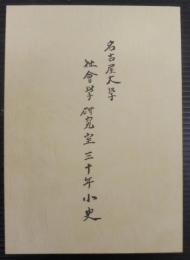 名古屋大学
社會学研究室三十年小史